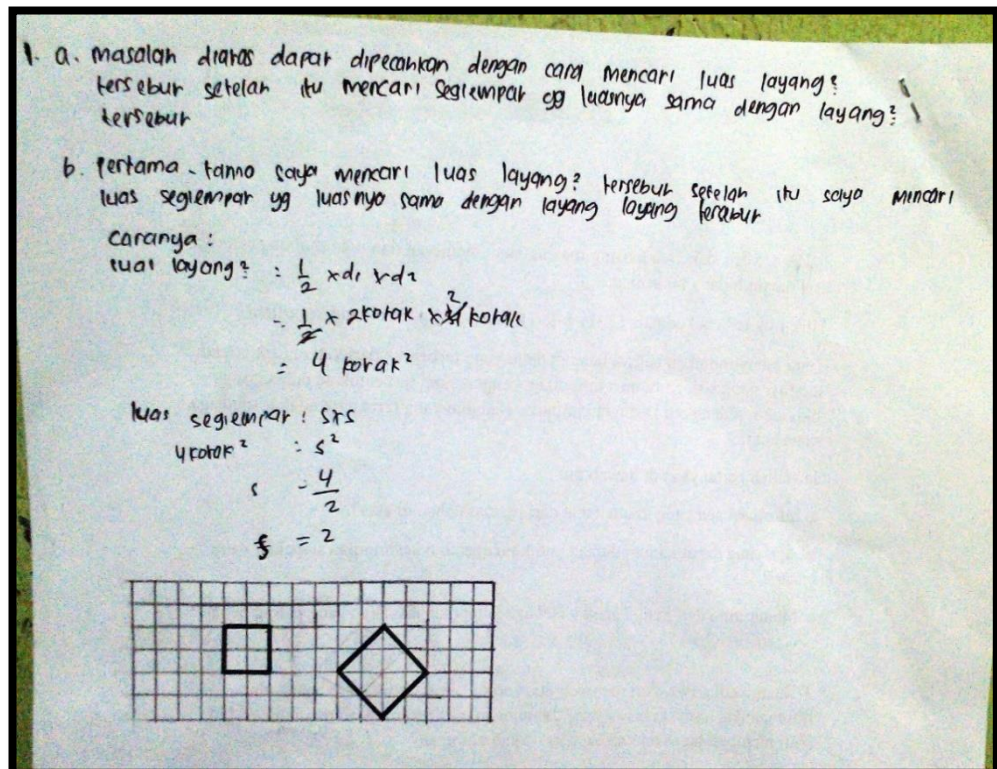 1. a. masalah diatas dapat dipecahkan dengan cara mencari luas layang²
tersebut setelah itu mencari segiempat yg luasnya sama dengan layang²
tersebut
b. Pertama-tama saya mencari luas layang² tersebut setelah itu saya mencari
luas segiempat yg luasnya sama dengan layang layang tersebut
Caranya :
luas layang² : 1/2 x d1 x d2
= 1/2 x 2 kotak x 4 2 kotak
= 4 kotak²
luas segiempat : sxs
4 kotak² = s²
s = 4/2
s = 2